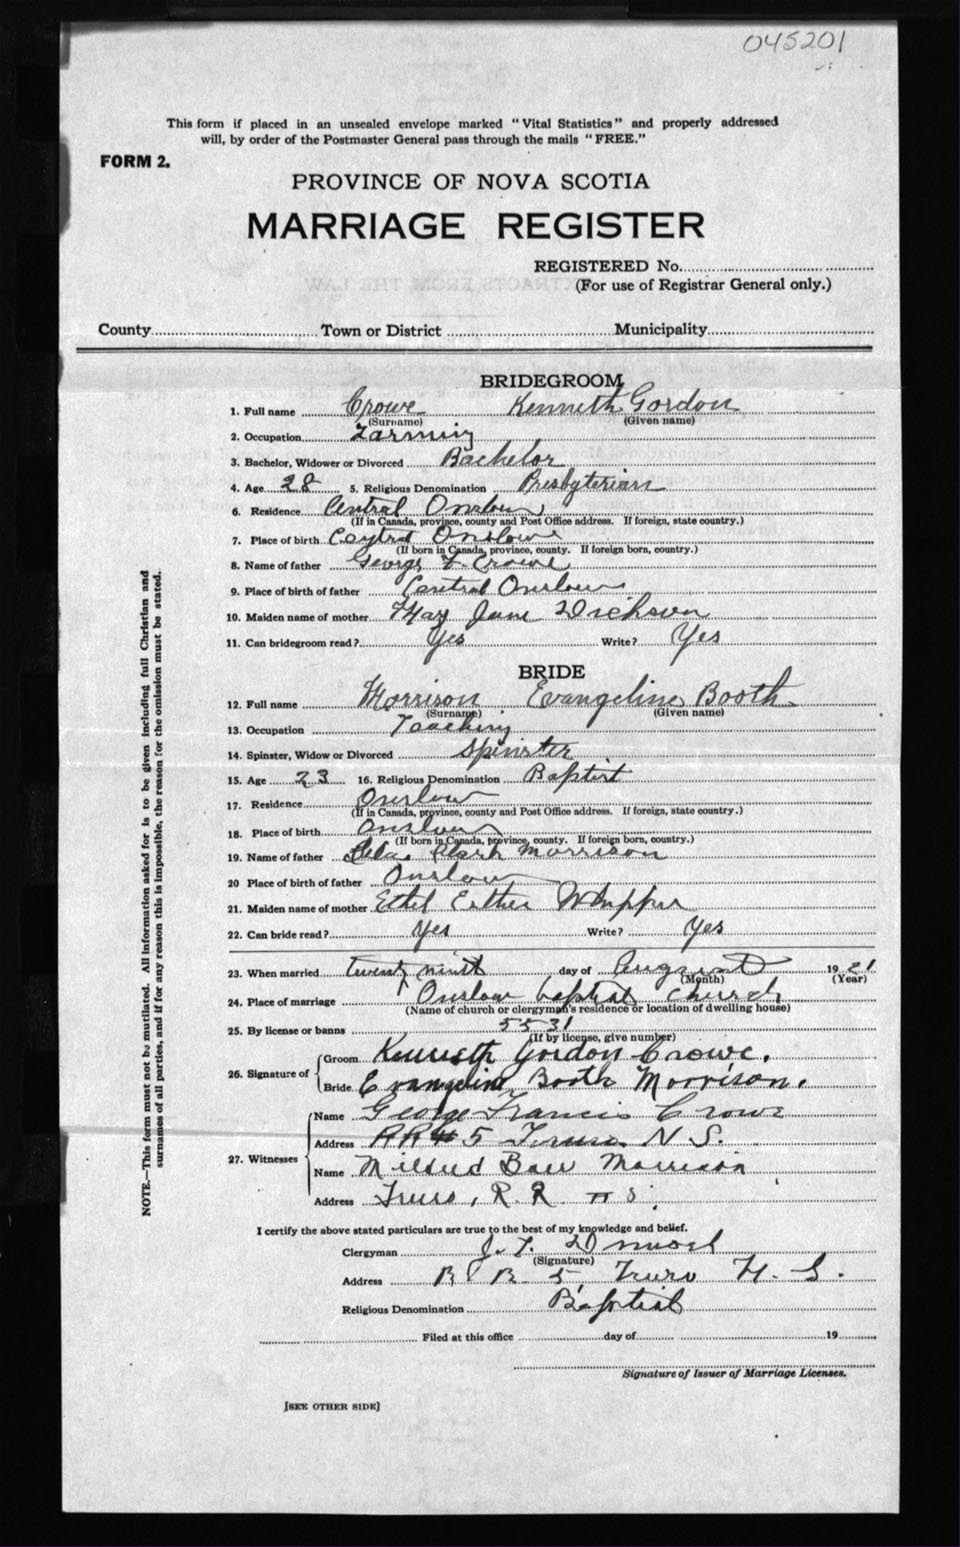 045201
This form if placed in an unsealed envelope marked "Vital Statistics" and properly addressed
will, by order of the Postmaster General pass through the mails "FREE."
FORM 2.
PROVINCE OF NOVA SCOTIA
MARRIAGE REGISTER
REGISTERED No.
(For use of Registrar General only.)
County Town or District Municipality
BRIDEGROOM
1. Full name Crowe Kenneth Gordon
(Surname) (Given name)
2. Occupation Farming
3. Bachelor, Widower or Divorced Bachelor
4. Age 28 5. Religious Denomination Presbyterian
6. Residence Central Onslow
(If in Canada, province, county and Post Office address. If foreign, state country.)
7. Place of birth Central Onslow
(If born in Canada, province, county. If foreign born, country.)
8. Name of father George F. Crowe
9. Place of birth of father Central Onslow
10. Maiden name of mother May Jane Dickson
11. Can bridegroom read? Yes Write? Yes
BRIDE
12. Full name Morrison Evangeline Booth
(Surname) (Given name)
13. Occupation Teaching
14. Spinster, Widow or Divorced Spinster
15. Age 23 16. Religious Denomination Baptist
17. Residence Onslow
(If in Canada, province, county and Post Office address. If foreign, state country.)
18. Place of birth Onslow
(If born in Canada, province, county. If foreign born, country.)
19. Name of father Clark Morrison
20 Place of birth of father Onslow
21. Maiden name of mother Ethel Esther
22. Can bride read? Yes Write? Yes
23. When married twenty ninth day of August 1921
(Month) (Year)
24. Place of marriage Onslow baptist Church
(Name of church or clergyman's residence or location of dwelling house)
25. By license or banns 5531
(If by license, give number)
26. Signature of Groom Kenneth Gordon Crowe.
Bride Evangeline Booth Morrison.
27. Witnesses Name George Francis Crowe
Address RR# 5 Truro N S.
Name Mildred Morrison
Address Truro, R R
I certify the above stated particulars are true to the best of my knowledge and belief.
Clergyman
(Signature)
Address R R 5, Truro N. S.
Religious Denomination Baptist
Filed at this office day of 19
Signature of Issuer of Marriage Licenses.
[SEE OTHER SIDE]
NOTE.—This form must not be mutilated. All information asked for is to be given including full Christian and
surnames of all parties, and if for any reason this is impossible, the reason for the omission must be stated.